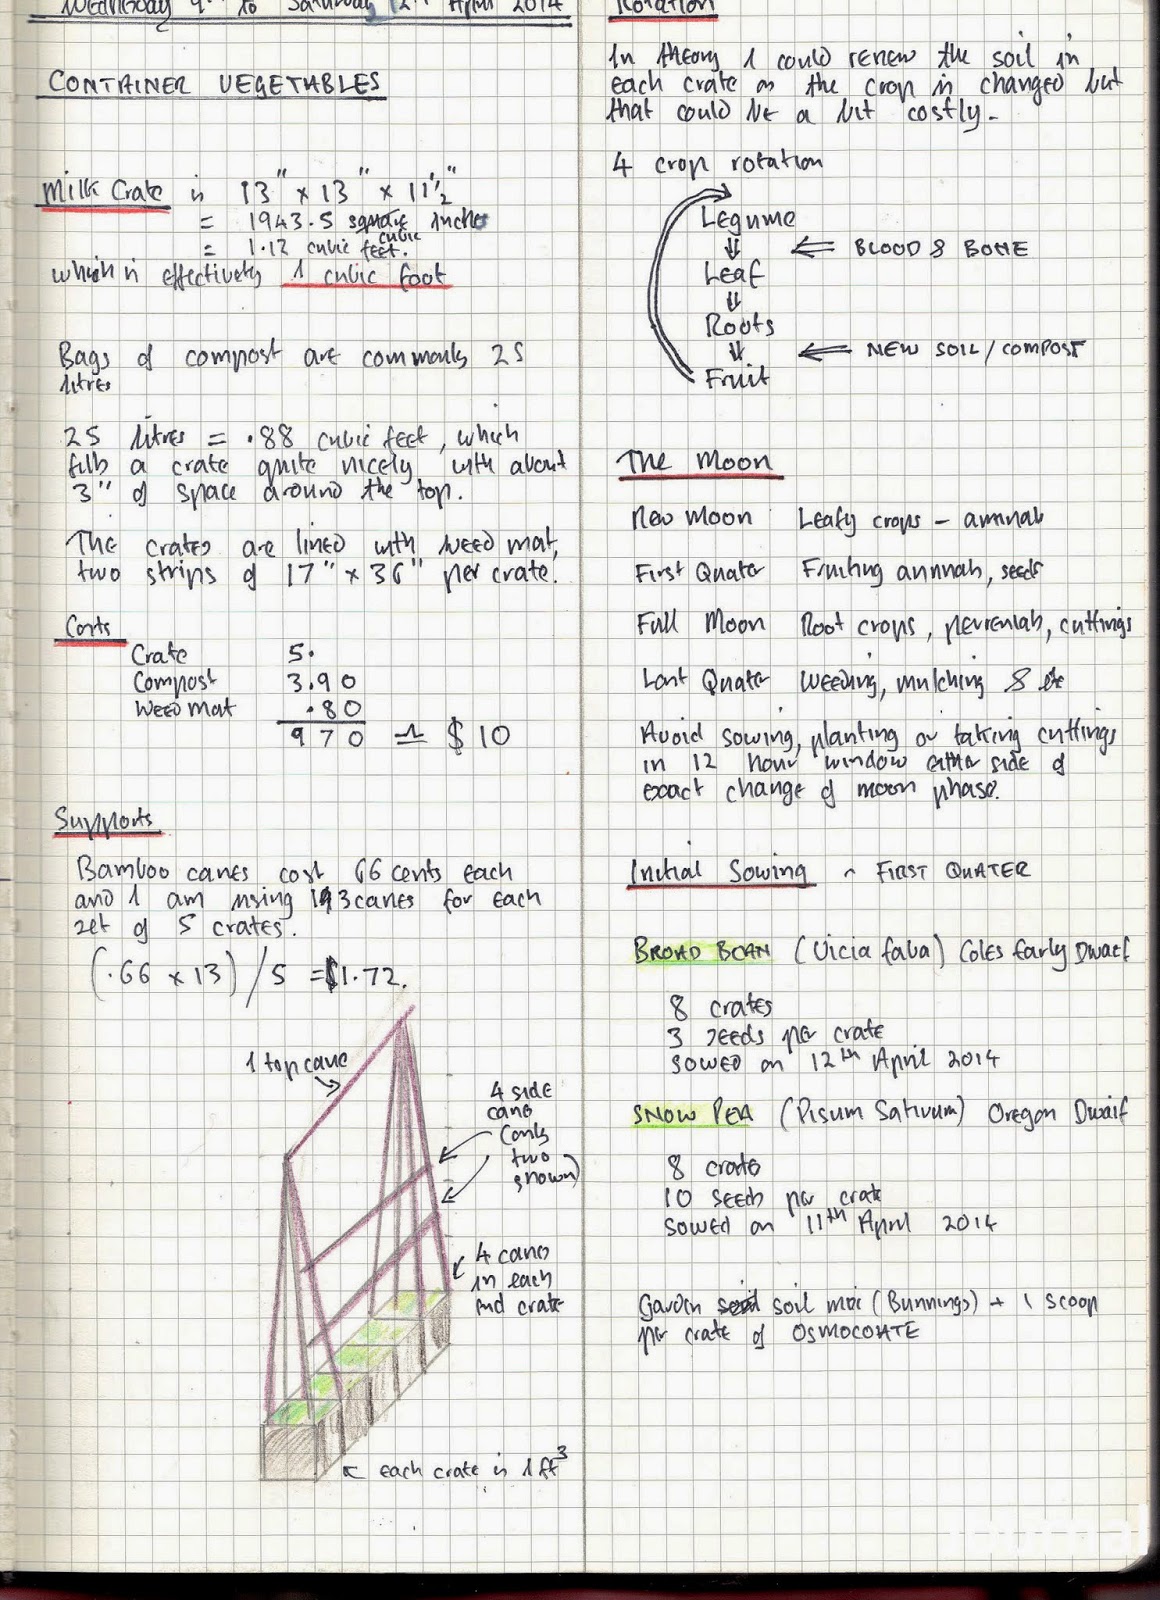 Wednesday 9th to Saturday 12th April 2014
CONTAINER VEGETABLES
Milk Crate is 13" x 13" x 11½"
= 1943.5 square inches
cubic
= 1.12 cubic feet.
which is effectively 1 cubic foot
Bags of compost are commonly 25
litres
25 litres = .88 cubic feet, which
fills a crate quite nicely with about
3" of space around the top.
The crates are lined with weed mat,
two strips of 17" x 36" per crate.
Costs
Crate 5.
Compost 3.90
Weed mat .80
970 ≏ $10
Supports
Bamboo canes cost 66 cents each
and I am using 13 canes for each
set of 5 crates.
(.66 x 13) / 5 = $1.72.
1 top cane
4 side
canes
(only
two
shown)
4 canes
in each
end crate
each crate is 1 ft³
Rotation
In theory I could renew the soil in
each crate as the crop is changed but
that could be a bit costly.
4 crop rotation
Legume
BLOOD & BONE
Leaf
Roots
NEW SOIL/COMPOST
Fruit
The Moon
New Moon Leafy crops - annuals
First Quater Fruiting annuals, seeds
Full Moon Root crops, perrenials, cuttings
Last Quater Weeding, mulching & etc
Avoid sowing, planting or taking cuttings
in 12 hour window either side of
exact change of moon phase.
Initial Sowing - FIRST QUATER
BROAD BEAN (Vicia faba) Coles Early Dwarf
8 crates
3 seeds per crate
sowed on 12th April 2014
SNOW PEA (Pisum Sativum) Oregon Dwarf
8 crates
10 seeds per crate
sowed on 11th April 2014
Garden soil mix (Bunnings) + 1 scoop
per crate of OSMOCOATE
Journal